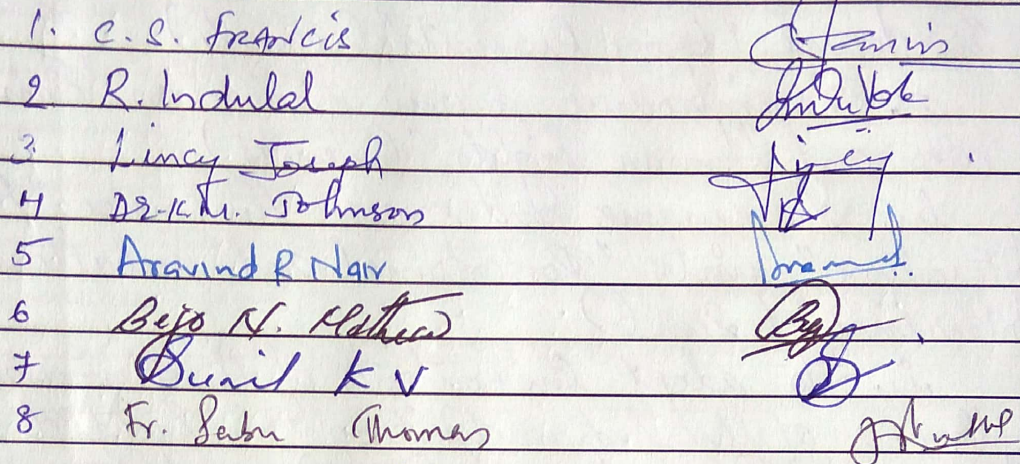 1. C.S. Francis
2 R. Indulal
3 Lincy Joseph Lincy
4 Dr. K.M. Johnson
5 Aravind R Nair
6 Bejo N. Mathew
7 Sunil K V
8 Fr. Sabu Thomas